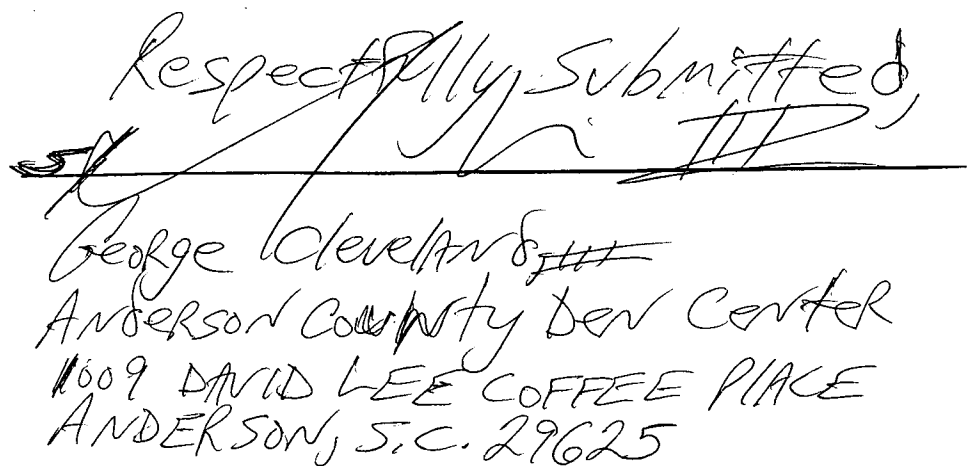 Respectfully Submitted,
S/
George Cleveland, III
Anderson County Den Center
1009 DAVID LEE COFFEE PlACE
ANDERSON, S.C. 29625